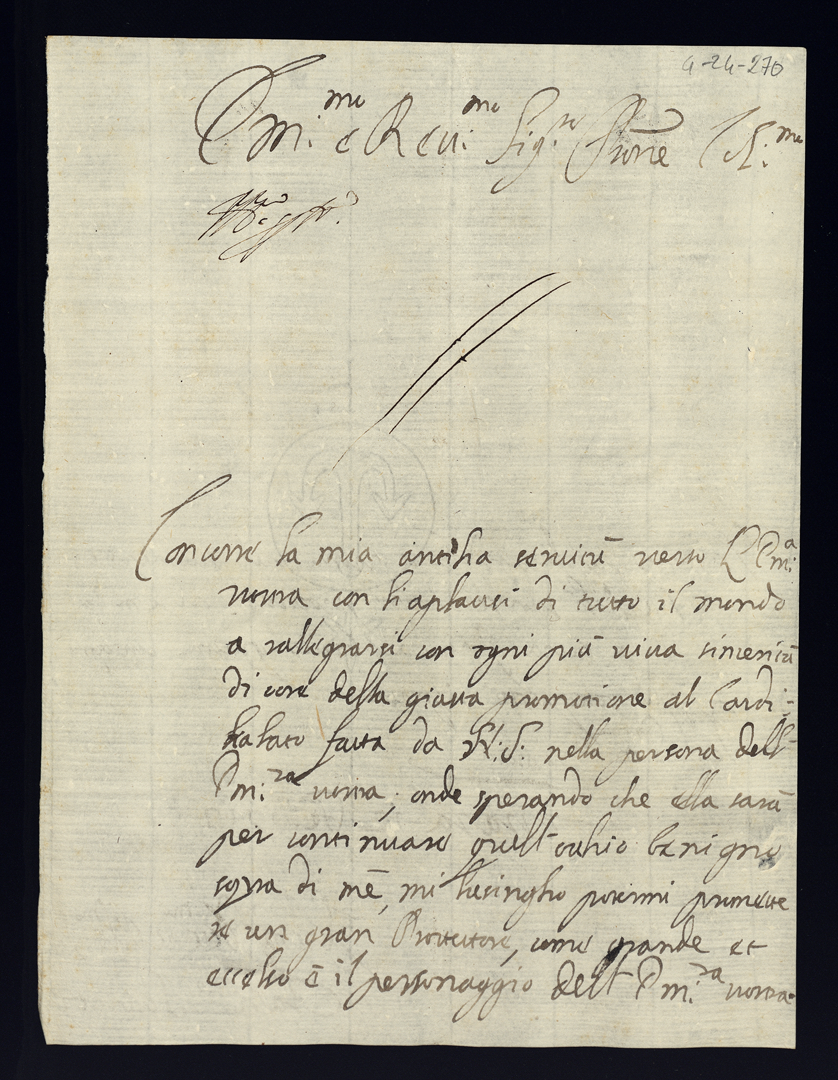 4-24-270
Em:mo e Rev:mo Sig:re Prone Col:mo
Concorre la mia anticha servitù verso l'Em:a
vostra con li aplausi di tutto il mondo
a rallegrarsi con ogni più viva sincerità
di core della giusta promotione al Cardi-
nalato fatta da N: S: nella persona dell'
Em:za vostra; onde sperando che ella sarà
per continuare quell'ochio benigno
sopra di mè, mi lusingho potermi promette
re un gran Protettore, come grande et
eccelso è il personaggio dell'Em:za vostra.